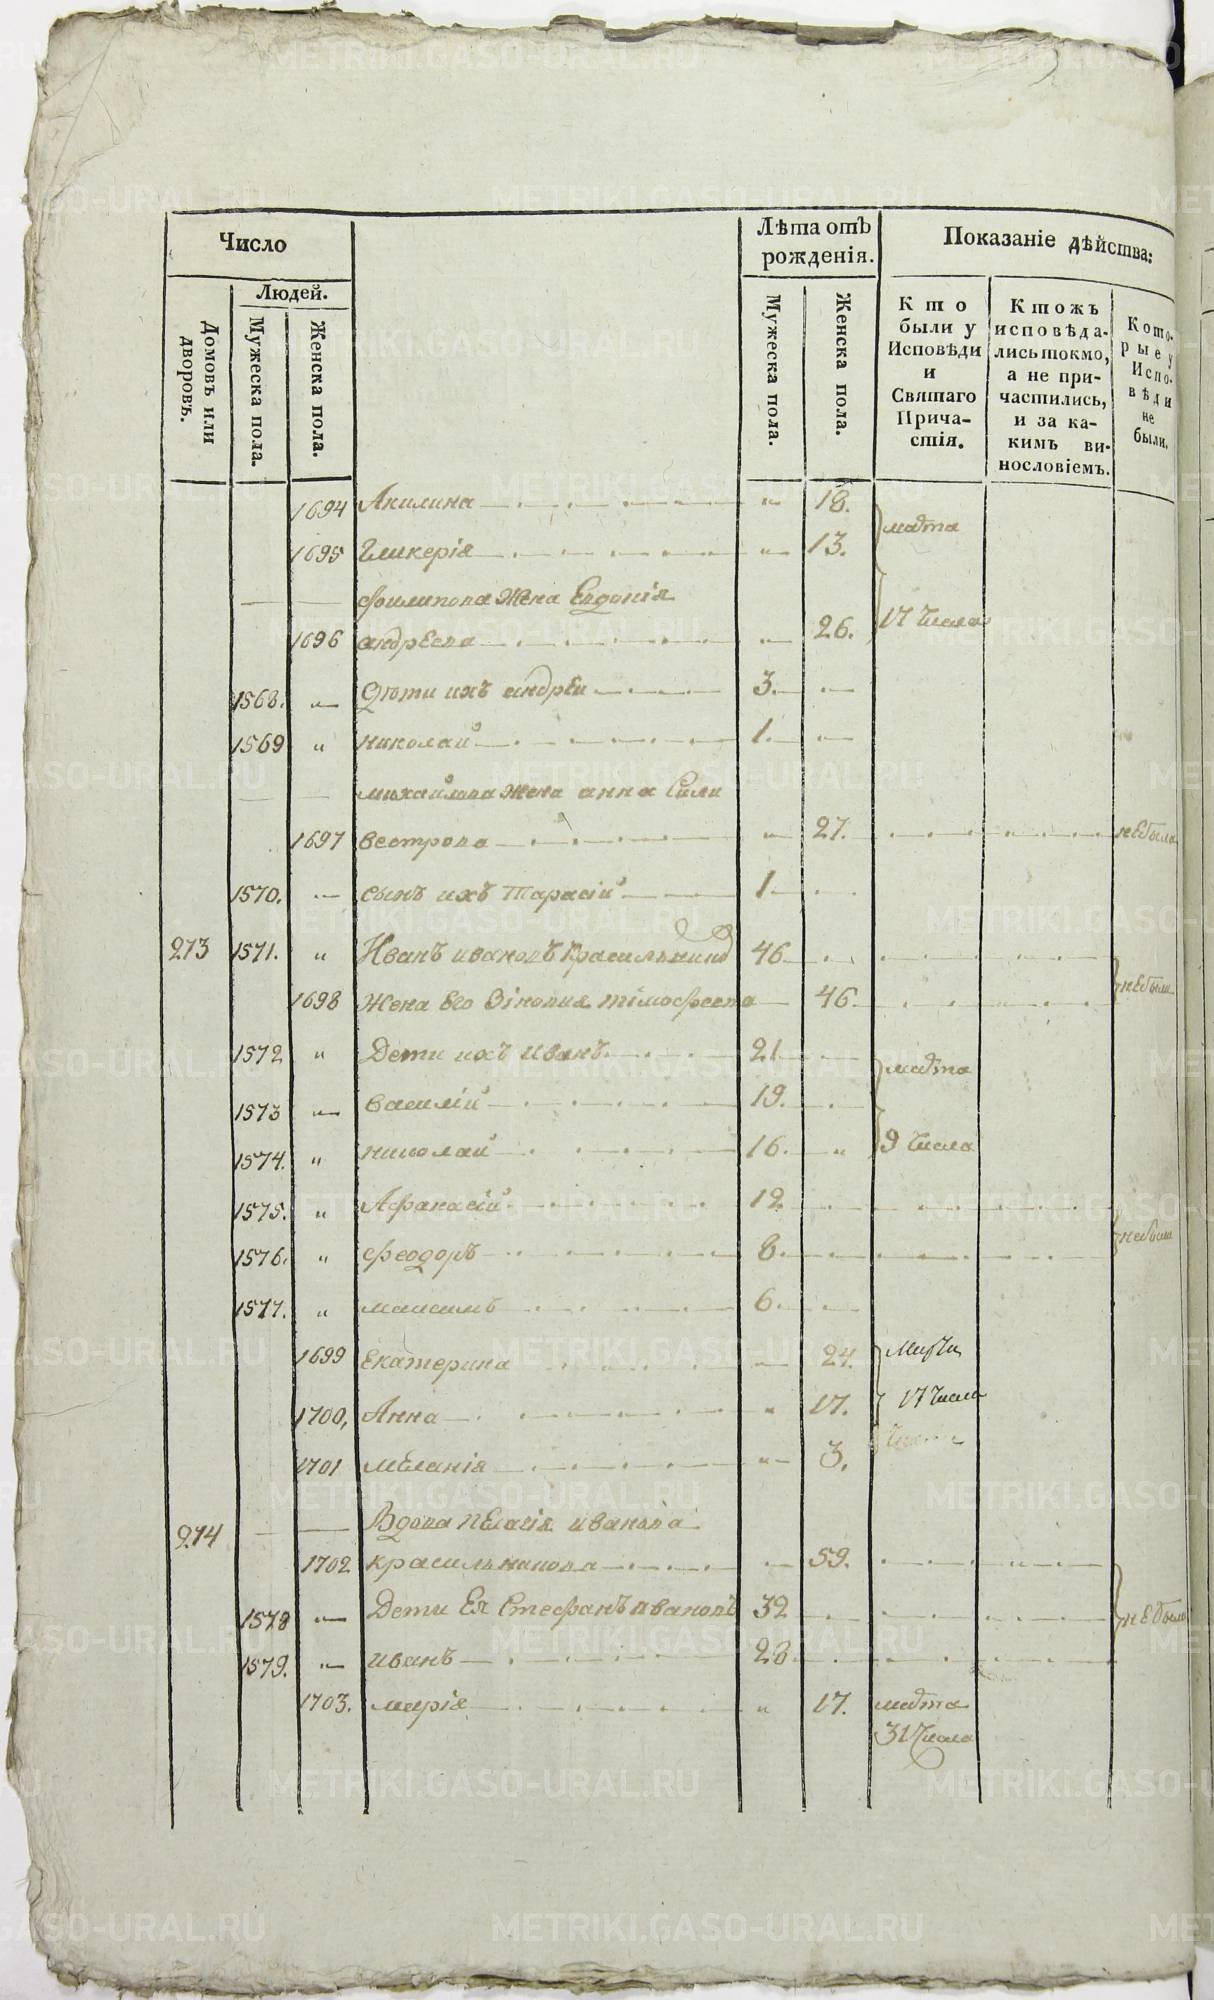 Число
Людей.
Домовъ или дворовъ.
Мужеска пола.
Женска пола.
Лѣта отъ рожденія.
Мужеска пола.
Женска пола.
Показаніе дѣйства:
Кто были у Исповѣди и Святаго Причастія.
Ктожъ исповѣдались токмо, а не причастились, и за какимъ винословіемъ.
Которые у Исповѣди не были.
1694 Акилина 18. марта
1695 Гликерія 13.
Филипова Жена Евдокія
1696 андреева 26. 17 числа
1568. Дѣти ихъ андреи 3.
1569 николаи 1.
михаилова жена анна Сили
1697 вестрова 27. небыла
1570. сынъ ихъ Тарасій 1
273 1571. Иванъ ивановъ Красильник 46
1698 Жена Его Зіновия тімофеева 46. небыли
1572 Дети ихъ иванъ 21 марта
1573 василій 19.
1574. николаи 16. 9 числа
1575. Афанасій 12
1576. феодоръ 8. небыли
1577. максимъ 6.
1699 екатерина 24. Марта
1700, Анна 17. 17 числа
1701 меланія 3.
274 Вдова пелагія иванова
1702 красильникова 59.
1578 Дети Ея Стефанъ ивановъ 32 небыли
1579. иванъ 28.
1703. марія 17. марта
31 числа
METRIKI.GASO-URAL.RU